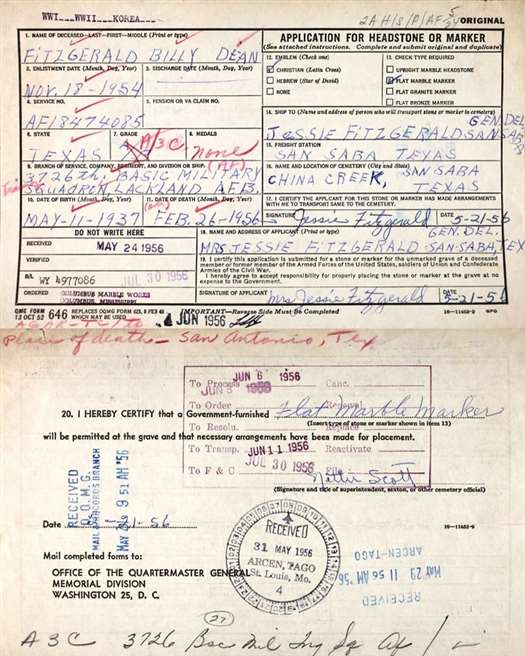 WWI WWII KOREA
2A H/S/P/AF 5/54
ORIGINAL
1. NAME OF DECEASED—LAST—FIRST—MIDDLE (Print or type)
FITZGERALD BILLY DEAN
2. ENLISTMENT DATE (Month, Day, Year)
3. DISCHARGE DATE (Month, Day, Year)
NOV. 18-1954
4. SERVICE NO.
5. PENSION OR VA CLAIM NO.
AF18474085
6. STATE
7. GRADE
8. MEDALS
TEXAS
A/3C
None
9. BRANCH OF SERVICE, COMPANY, REGIMENT, AND DIVISION OR SHIP
(AF)
3726th, BASIC MILITARY
SQUADRON, LACKLAND AFB.
10. DATE OF BIRTH (Month, Day, Year)
11. DATE OF DEATH (Month, Day, Year)
MAY-11-1937
FEB. 26-1956
DO NOT WRITE HERE
RECEIVED
MAY 24 1956
VERIFIED
B/L
WY 4977086
JUL 30 1956
ORDERED
COLUMBUS MARBLE WORKS
COLUMBUS, MISSISSIPPI
APPLICATION FOR HEADSTONE OR MARKER
(See attached instructions. Complete and submit original and duplicate)
12. EMBLEM (Check one)
CHRISTIAN (Latin Cross)
HEBREW (Star of David)
NONE
13. CHECK TYPE REQUIRED
UPRIGHT MARBLE HEADSTONE
FLAT MARBLE MARKER
FLAT GRANITE MARKER
FLAT BRONZE MARKER
14. SHIP TO (Name and address of person who will transport stone or marker to cemetery)
GEN. DEL.
JESSIE FITZGERALD SAN SABA
15. FREIGHT STATION
SAN SABA TEXAS
16. NAME AND LOCATION OF CEMETERY (City and State)
CHINA CREEK, SAN SABA
TEXAS
17. I CERTIFY THE APPLICANT FOR THIS STONE OR MARKER HAS MADE ARRANGEMENTS
WITH ME TO TRANSPORT SAME TO THE CEMETERY.
SIGNATURE
Jessie Fitzgerald
DATE
5-21-56
18. NAME AND ADDRESS OF APPLICANT (Print or type)
GEN. DEL.
MRS JESSIE FITZGERALD-SAN-SABA TEX
19. I certify this application is submitted for a stone or marker for the unmarked grave of a deceased
member or former member of the Armed Forces of the United States, soldiers of Union and Confederate
Armies of the Civil War.
I hereby agree to accept responsibility for properly placing the stone or marker at the grave at no
expense to the Government.
SIGNATURE OF APPLICANT
Mrs Jessie Fitzgerald
DATE
5-21-56
DMC FORM
13 OCT 52
646
REPLACES OQMG FORM 623, 8 FEB 49
WHICH MAY BE USED
IMPORTANT—Reverse Side Must be Completed
16—11453-9
GPO
4 JUN 1956
Place of death - San Antonio, Tex
JUN 6 1956
To Process
JUN 8 1956
Canc.
To Order
Removal
To Resolu.
Replace
To Transp.
JUN 11 1956
Reactivate
To F & C
JUL 30 1956
File
20. I HEREBY CERTIFY that a Government-furnished Flat Marble Marker
(Insert type of stone or marker shown in item 13)
will be permitted at the grave and that necessary arrangements have been made for placement.
Nettie Scott
(Signature and title of superintendent, sexton, or other cemetery official)
RECEIVED
O.Q.M.G.
MAIL & RECORDS BRANCH
MAY 9 51 AM '56
Date 5-21-56
16—11453-9
RECEIVED
31 MAY 1956
ARCEN, TAGO
St. Louis, Mo.
4
RECEIVED
MAY 29 11 56 AM '56
ARCEN-TAGO
Mail completed forms to:
OFFICE OF THE QUARTERMASTER GENERAL
MEMORIAL DIVISION
WASHINGTON 25, D. C.
27
A3C 3726 Bsc Mil Tng Sq AF